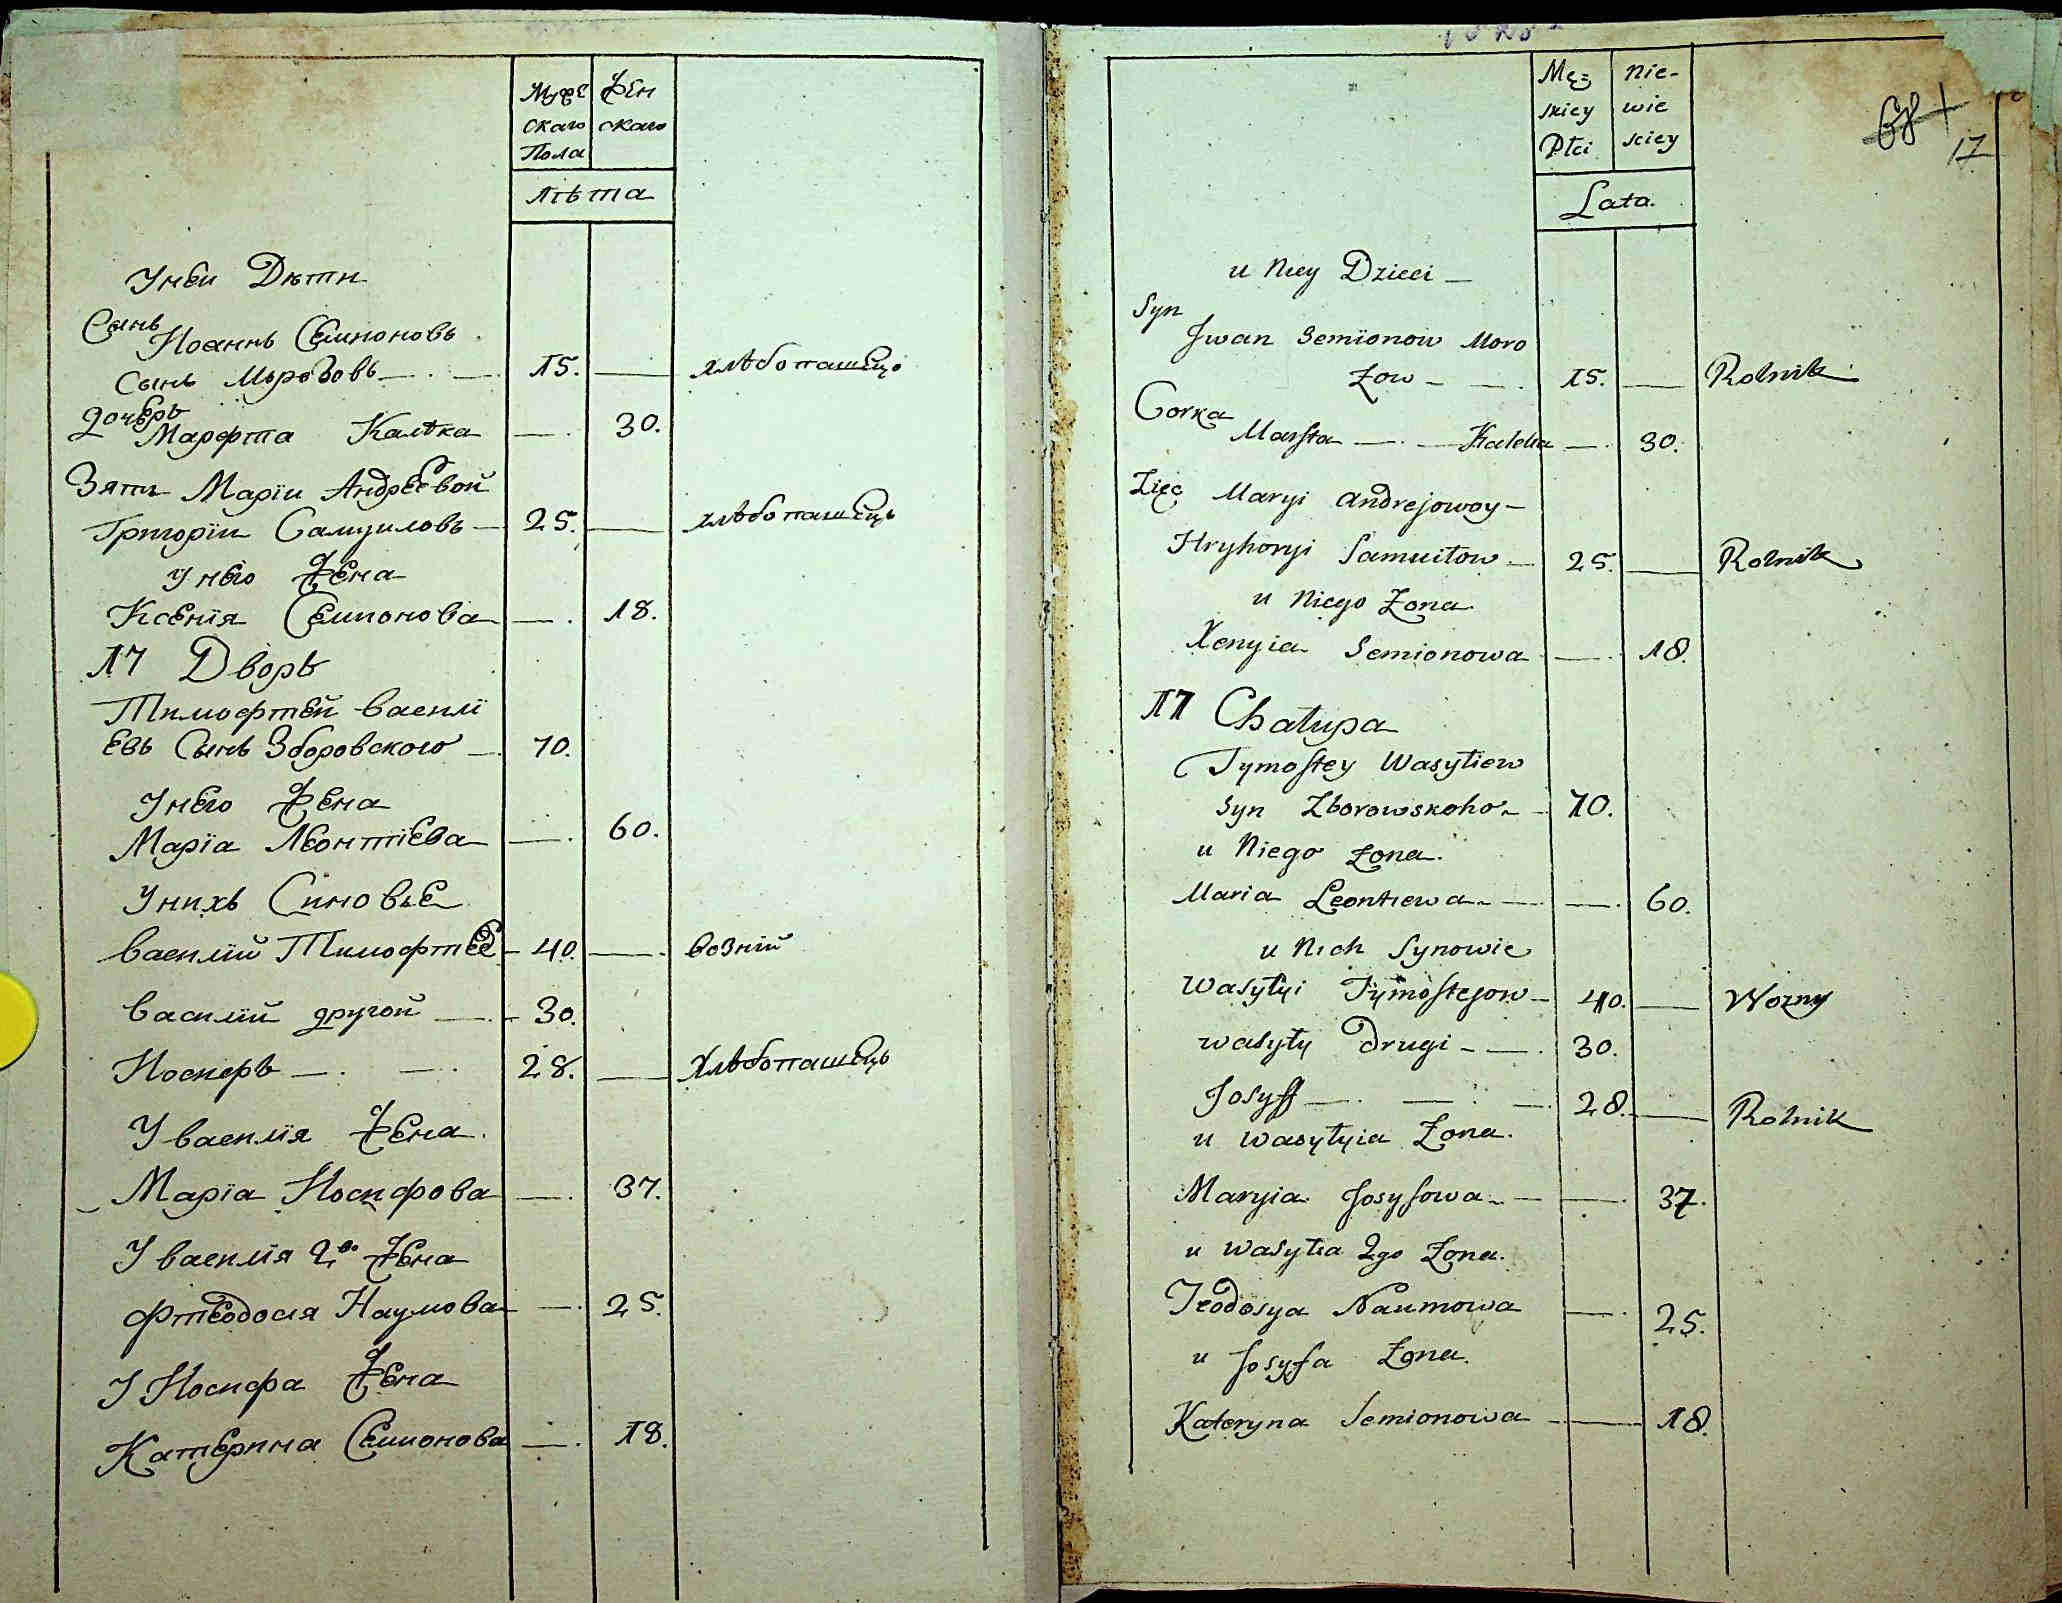 Мужe Жен
скаго скаго
Пола
Лѣта
Унеи Дѣти
Сынъ
Иоаннъ Семионовъ
Сынъ Морозовъ 15. хлѣбопашецъ
Дочерь
Марфта Калѣка 30.
Зять Марїи Андреевой
Григорїи Самуиловъ 25. хлѣбопашецъ
Унего Жена
Ксенїя Семионова 18.
17 Дворъ
Тимофтей Василї
евъ Сынъ Зборовского 70.
Унего Жена
Марїа Леонтїева 60.
Унихъ Синовье
Василїй Тимофтее 40. Возній
Василїй другой 30.
Иосифъ 28. Хлѣбопашецъ
У Василїя Жена
Марїа Иосифова 37.
У Василїя 2го Жена
Фтеодосїя Наумова 25.
У Иосифа Жена
Катерина Семионова 18.
Męz Nie-
skiey wie
Płci sciey
Lata.
68
17
u Niey Dzieci
Syn
Jwan Semïonow Moro
zow 15. Rolnik
Corka
Marfta Kaleka 30.
Zięć Maryi Andrejowoy
Hryhoryi Samuiłow 25. Rolnik
u Niego Żona
Xenyia Semionowa 18.
17 Chałupa
Tymoftey Wasyliew
Syn Zborowskoho 70.
u Niego Żona.
Maria Leontiewa 60.
u Nich Synowie
Wasylyi Tymoftejow 40. Wozny
Wasyly Drugi 30.
Josyff 28. Rolnik
u Wasylyia Żona.
Maryia Josyfowa 37.
u Wasyla 2go Żona.
Teodosya Naumowa 25.
u Josyfa Żona.
Kateryna Semionowa 18.